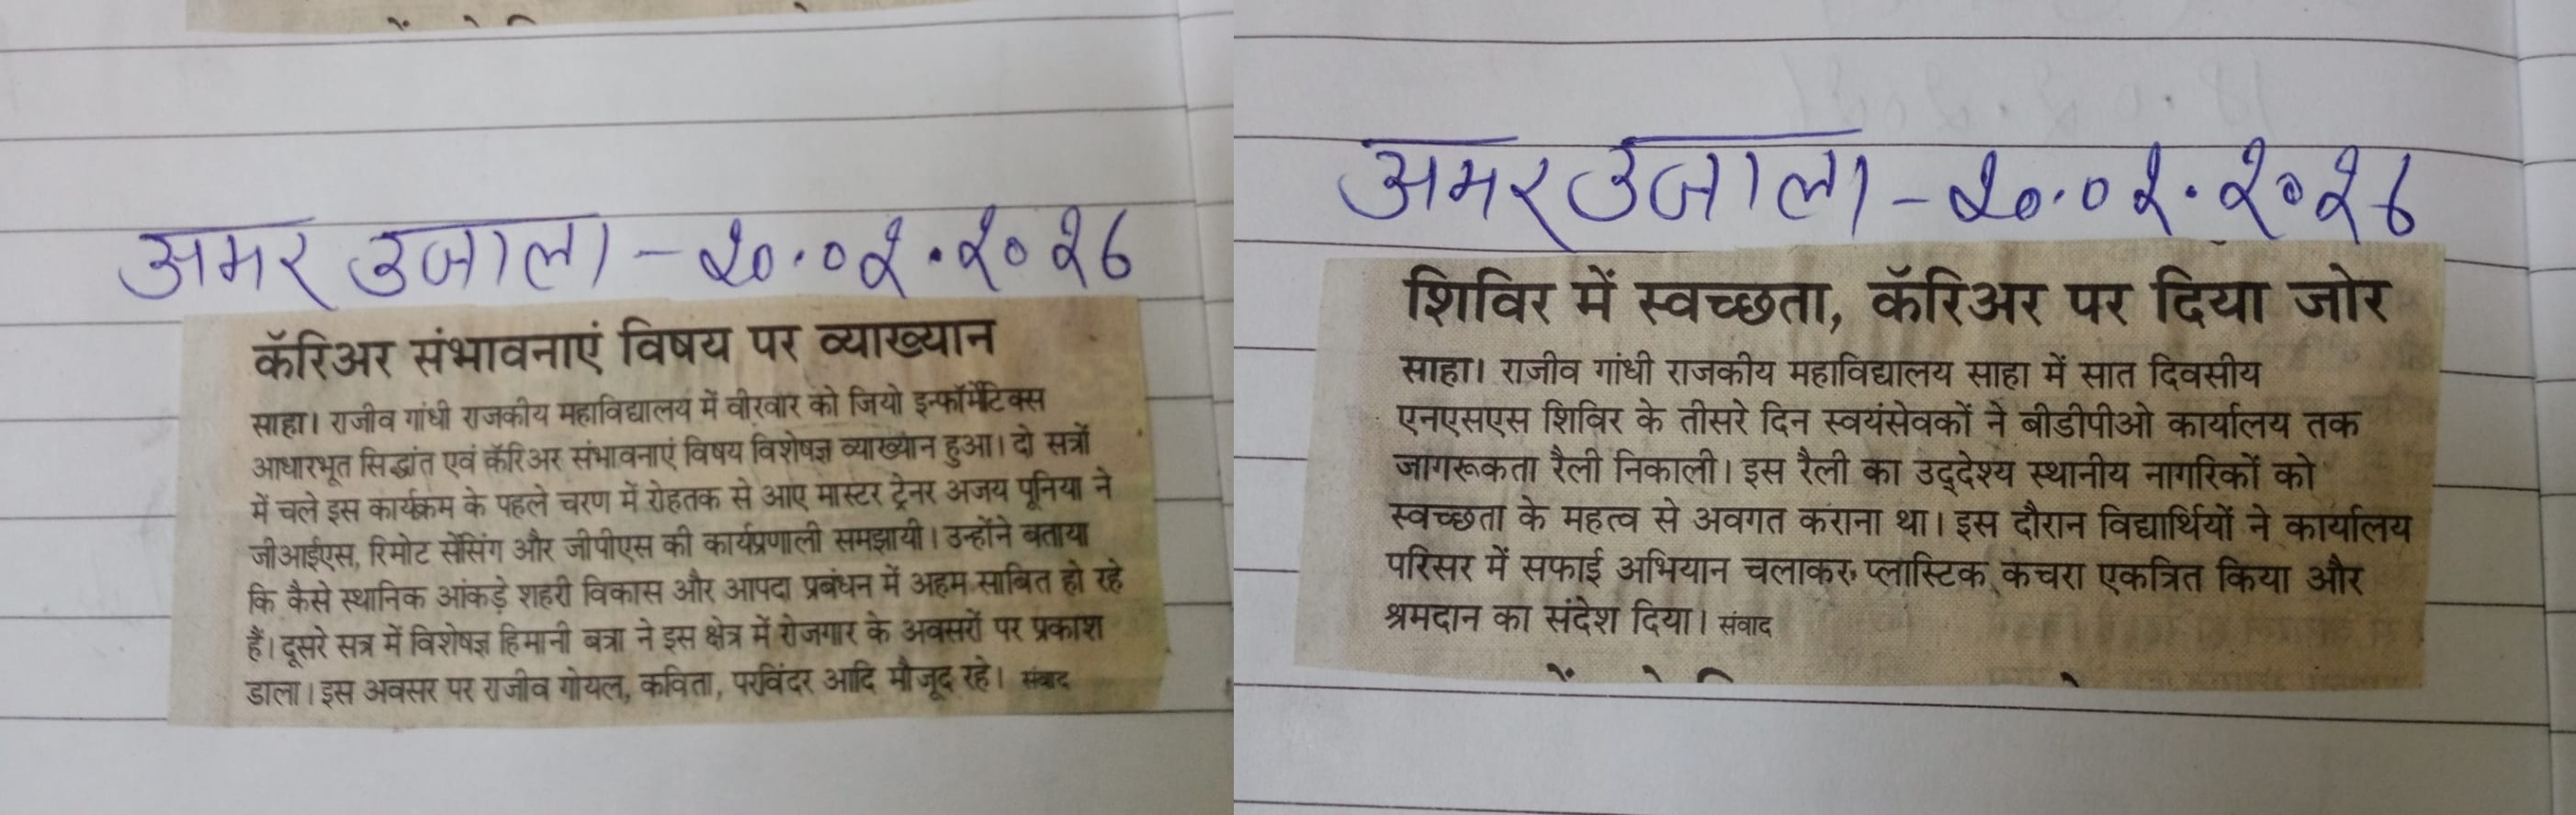 अमर उजाला - २०.०२.२०२६
कॅरिअर संभावनाएं विषय पर व्याख्यान
साहा। राजीव गांधी राजकीय महाविद्यालय में वीरवार को जियो इन्फॉर्मेटिक्स
आधारभूत सिद्धांत एवं कॅरिअर संभावनाएं विषय विशेषज्ञ व्याख्यान हुआ। दो सत्रों
में चले इस कार्यक्रम के पहले चरण में रोहतक से आए मास्टर ट्रेनर अजय पूनिया ने
जीआईएस, रिमोट सेंसिंग और जीपीएस की कार्यप्रणाली समझायी। उन्होंने बताया
कि कैसे स्थानिक आंकड़े शहरी विकास और आपदा प्रबंधन में अहम साबित हो रहे
हैं। दूसरे सत्र में विशेषज्ञ हिमानी बत्रा ने इस क्षेत्र में रोजगार के अवसरों पर प्रकाश
डाला। इस अवसर पर राजीव गोयल, कविता, परविंदर आदि मौजूद रहे। संवाद
अमर उजाला - २०.०२.२०२६
शिविर में स्वच्छता, कॅरिअर पर दिया जोर
साहा। राजीव गांधी राजकीय महाविद्यालय साहा में सात दिवसीय
एनएसएस शिविर के तीसरे दिन स्वयंसेवकों ने बीडीपीओ कार्यालय तक
जागरूकता रैली निकाली। इस रैली का उद्देश्य स्थानीय नागरिकों को
स्वच्छता के महत्व से अवगत कराना था। इस दौरान विद्यार्थियों ने कार्यालय
परिसर में सफाई अभियान चलाकर प्लास्टिक कचरा एकत्रित किया और
श्रमदान का संदेश दिया। संवाद